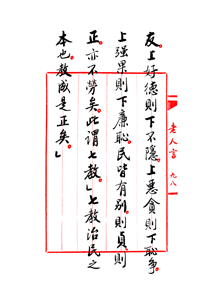 友。上好德則下不隱。上惡貪則下恥爭。
上强果則下廉恥。民皆有別。則貞則
正。亦不勞矣。此謂七教」七教治民之
本也。教咸是正矣。」
老人言 九八